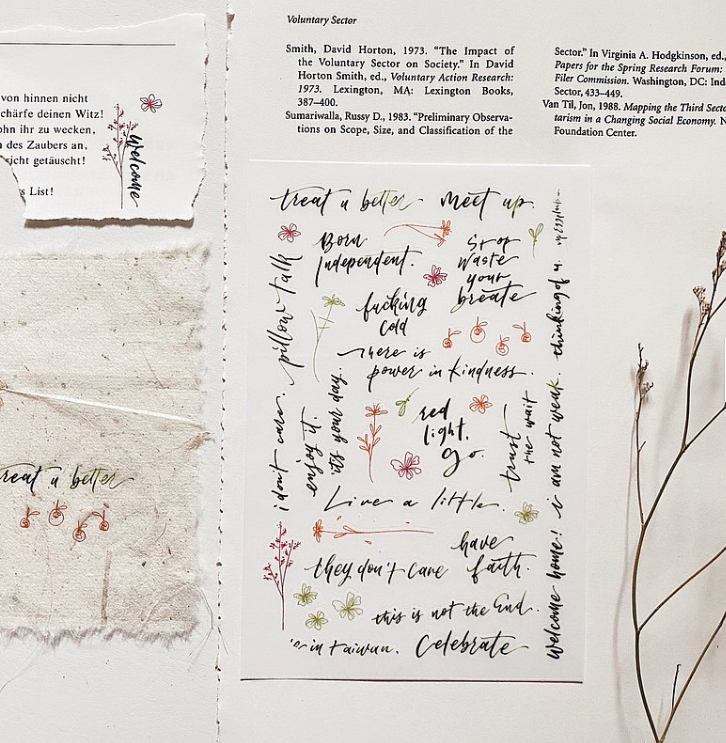 Voluntary Sector
Smith, David Horton, 1973. "The Impact of
the Voluntary Sector on Society." In David
Horton Smith, ed., Voluntary Action Research:
1973. Lexington, MA: Lexington Books,
387–400.
Sumariwalla, Russy D., 1983. "Preliminary Observa-
tions on Scope, Size, and Classification of the
Sector." In Virginia A. Hodgkinson, ed.,
Papers for the Spring Research Forum:
Filer Commission. Washington, DC: Ind
Sector, 433–449.
Van Til, Jon, 1988. Mapping the Third Secto
tarism in a Changing Social Economy. N
Foundation Center.
von hinnen nicht
chärfe deinen Witz!
ohn ihr zu wecken,
des Zaubers an,
nicht getäuscht!
s List!
welcome
treat a better
treat a better
meet up.
Born
Independent.
Stop
waste
your
breate
pillow talk
fucking
cold
There is
power in kindness.
thinking of u.
i don't care.
enjoy it.
it's your day.
red
light.
go.
trust
the wait
i am not weak.
Live a little.
have
faith.
they don't care
this is not the End.
welcome home!
in taiwan.
Celebrate